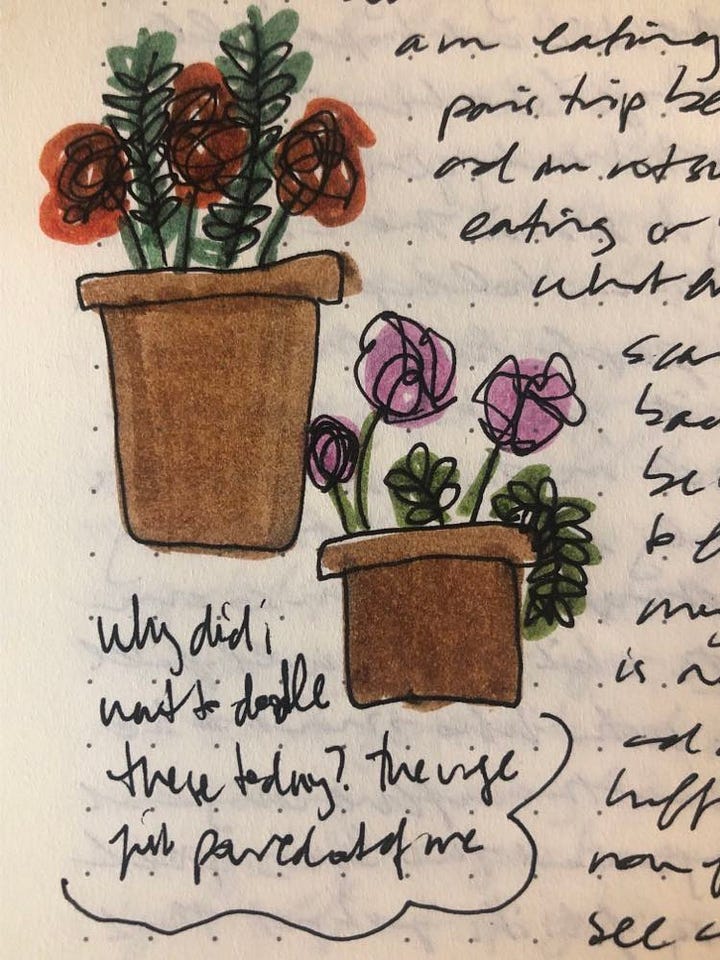 am eating
paris trip be
and am not su
eating or
what a
sca
bac
be
to f
me
is n
and
huff
now f
see a
why did i
want to doodle
these today? the urge
just poured out of me